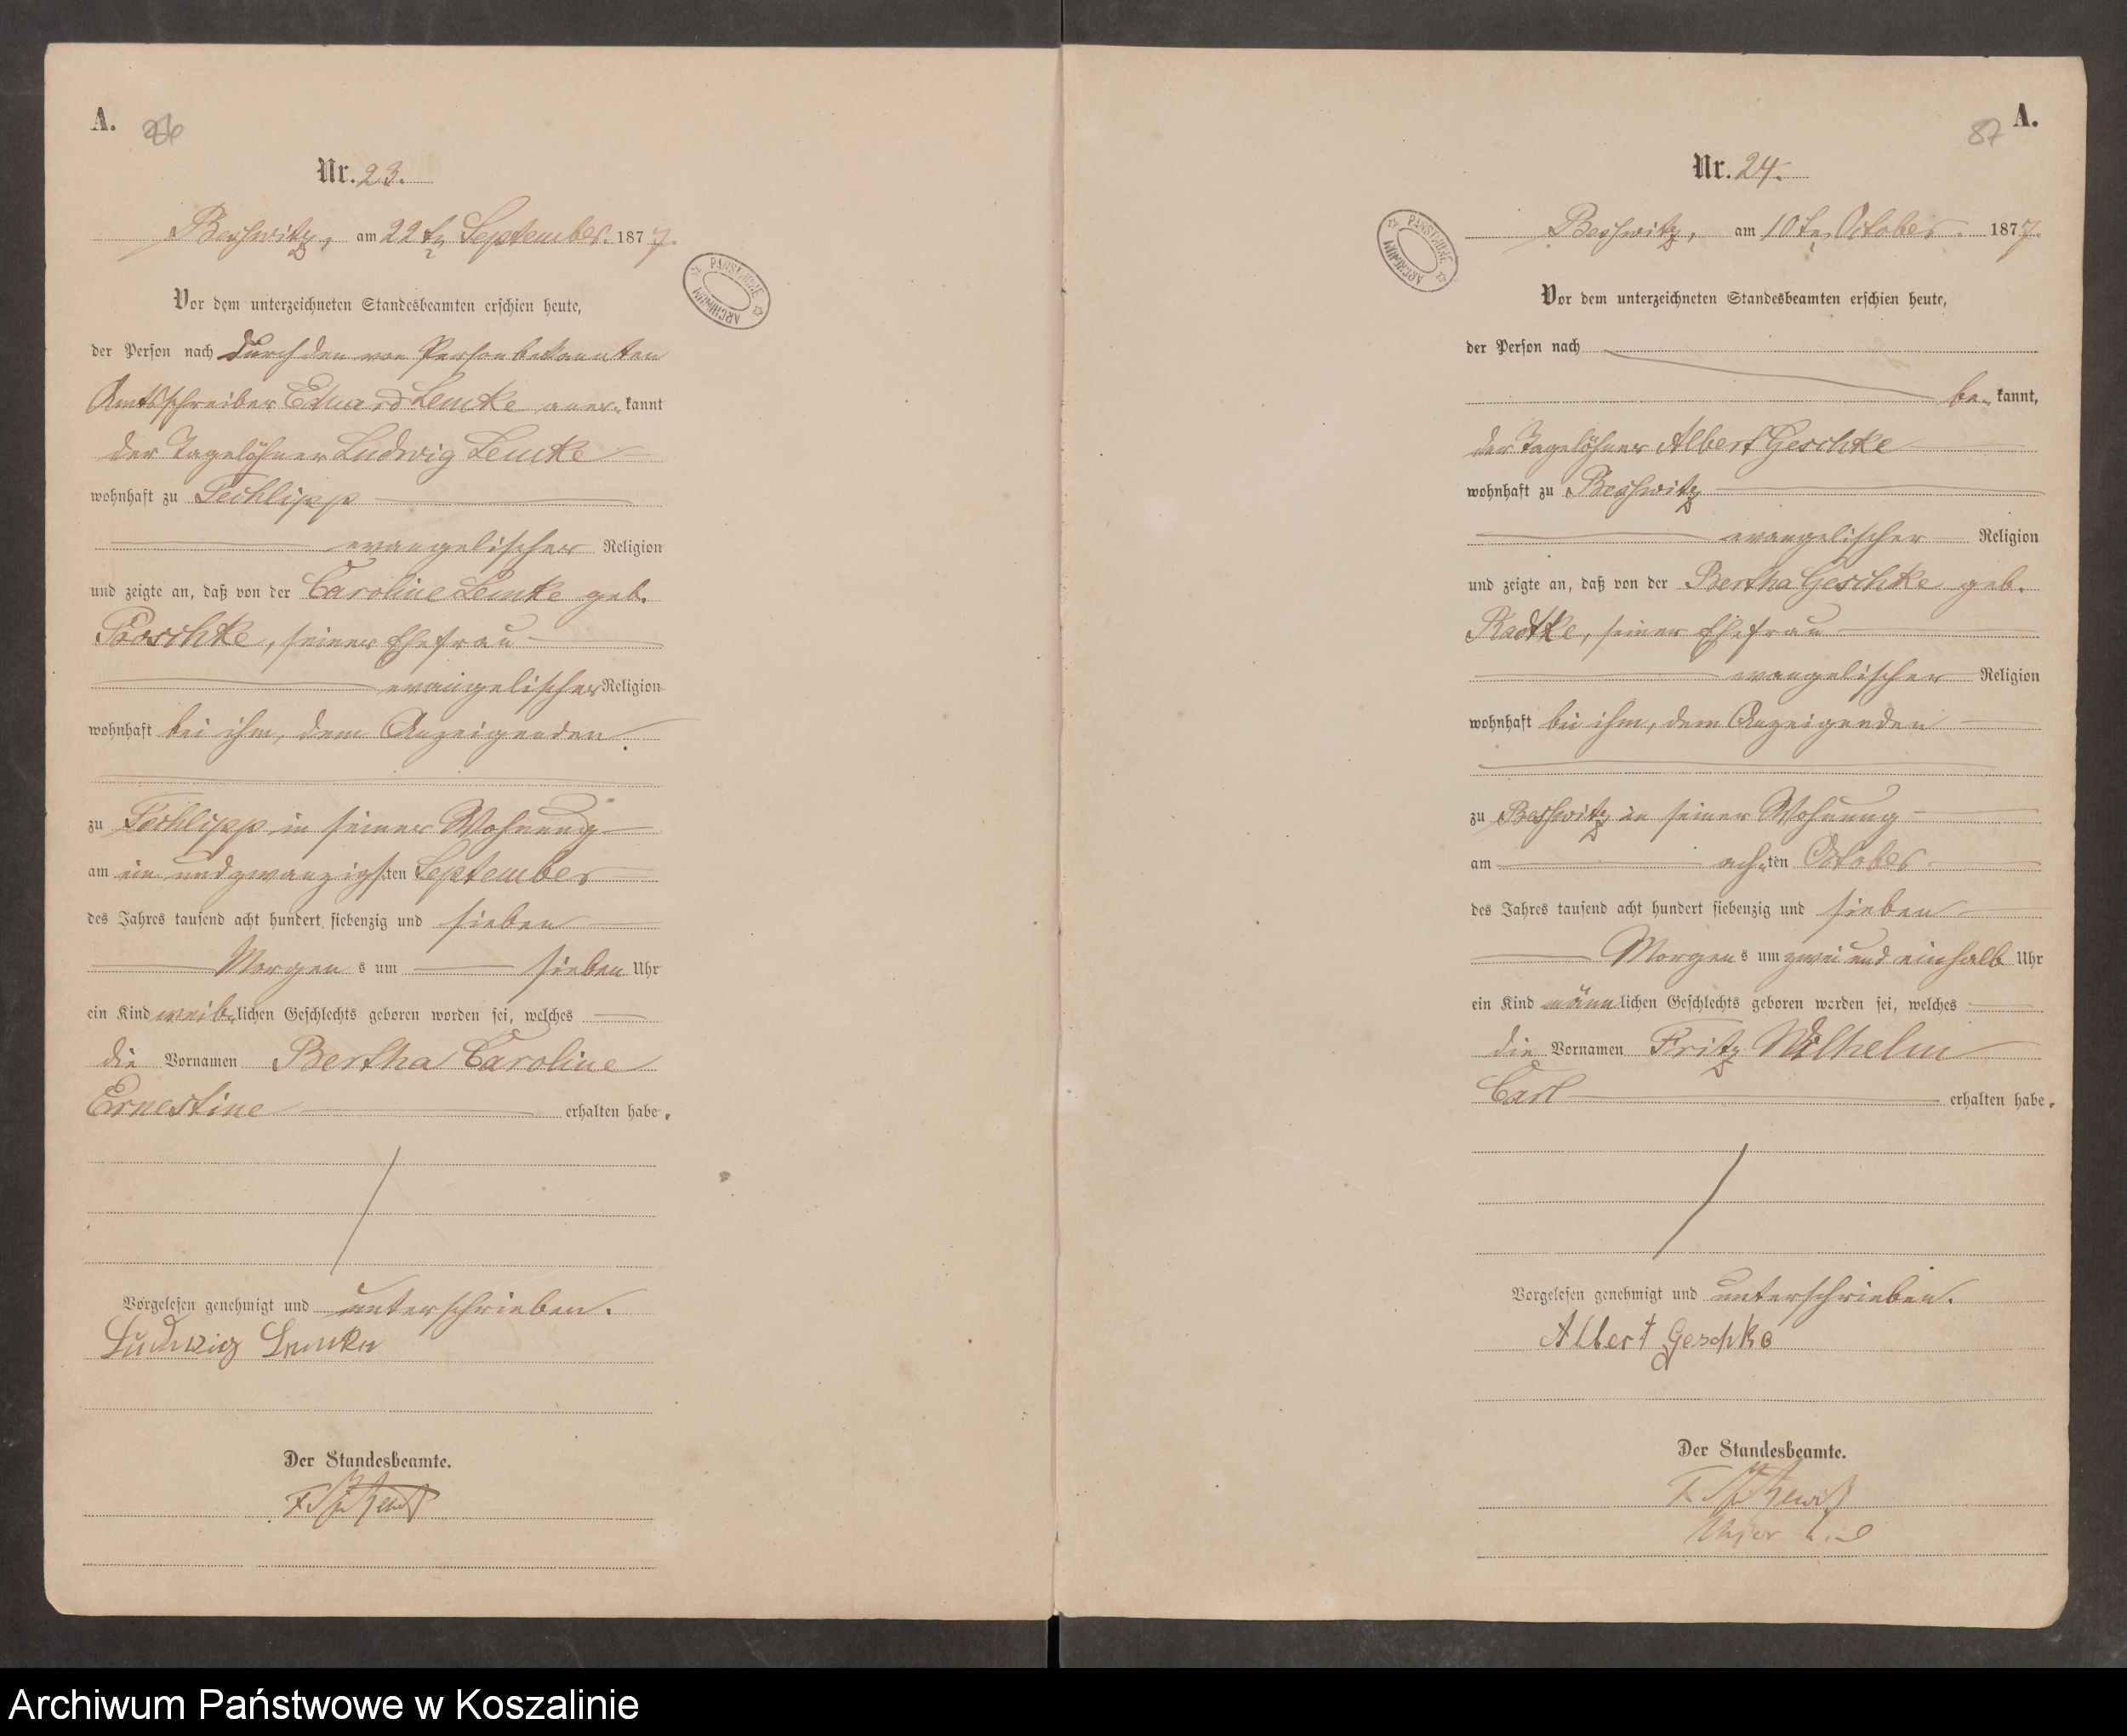 A. 86
Nr. 23.
Beßwitz, am 22 tn September 1877.
PAŃSTWOWE ARCHIWUM
Vor dem unterzeichneten Standesbeamten erschien heute,
der Person nach durch den von Person bekannten
Amtsschreiber Eduard Lemke aner- kannt
der Tagelöhner Ludwig Lemke
wohnhaft zu Techlipp
evangelischer Religion
und zeigte an, daß von der Caroline Lemke geb.
Poschke, seiner Ehefrau
evangelischer Religion
wohnhaft bei ihm, dem Anzeigenden
zu Techlipp in seiner Wohnung
am ein und zwanzigsten September
des Jahres tausend acht hundert siebenzig und sieben
Morgens um sieben Uhr
ein Kind weiblichen Geschlechts geboren worden sei, welches
die Vornamen Bertha Caroline
Ernestine erhalten habe.
Vorgelesen genehmigt und unterschrieben.
Ludwig Lemke
Der Standesbeamte.
87 A.
Nr. 24.
Beßwitz, am 10 tn October 1877.
PAŃSTWOWE ARCHIWUM
Vor dem unterzeichneten Standesbeamten erschien heute,
der Person nach
be- kannt,
der Tagelöhner Albert Geschke
wohnhaft zu Beßwitz
evangelischer Religion
und zeigte an, daß von der Bertha Geschke geb.
Radtke, seiner Ehefrau
evangelischer Religion
wohnhaft bei ihm, dem Anzeigenden
zu Beßwitz in seiner Wohnung
am ach-ten October
des Jahres tausend acht hundert siebenzig und sieben
Morgens um zwei und einhalb Uhr
ein Kind männlichen Geschlechts geboren worden sei, welches
die Vornamen Fritz Wilhelm
Carl erhalten habe.
Vorgelesen genehmigt und unterschrieben.
Albert Geschke
Der Standesbeamte.
Major a. D
Archiwum Państwowe w Koszalinie